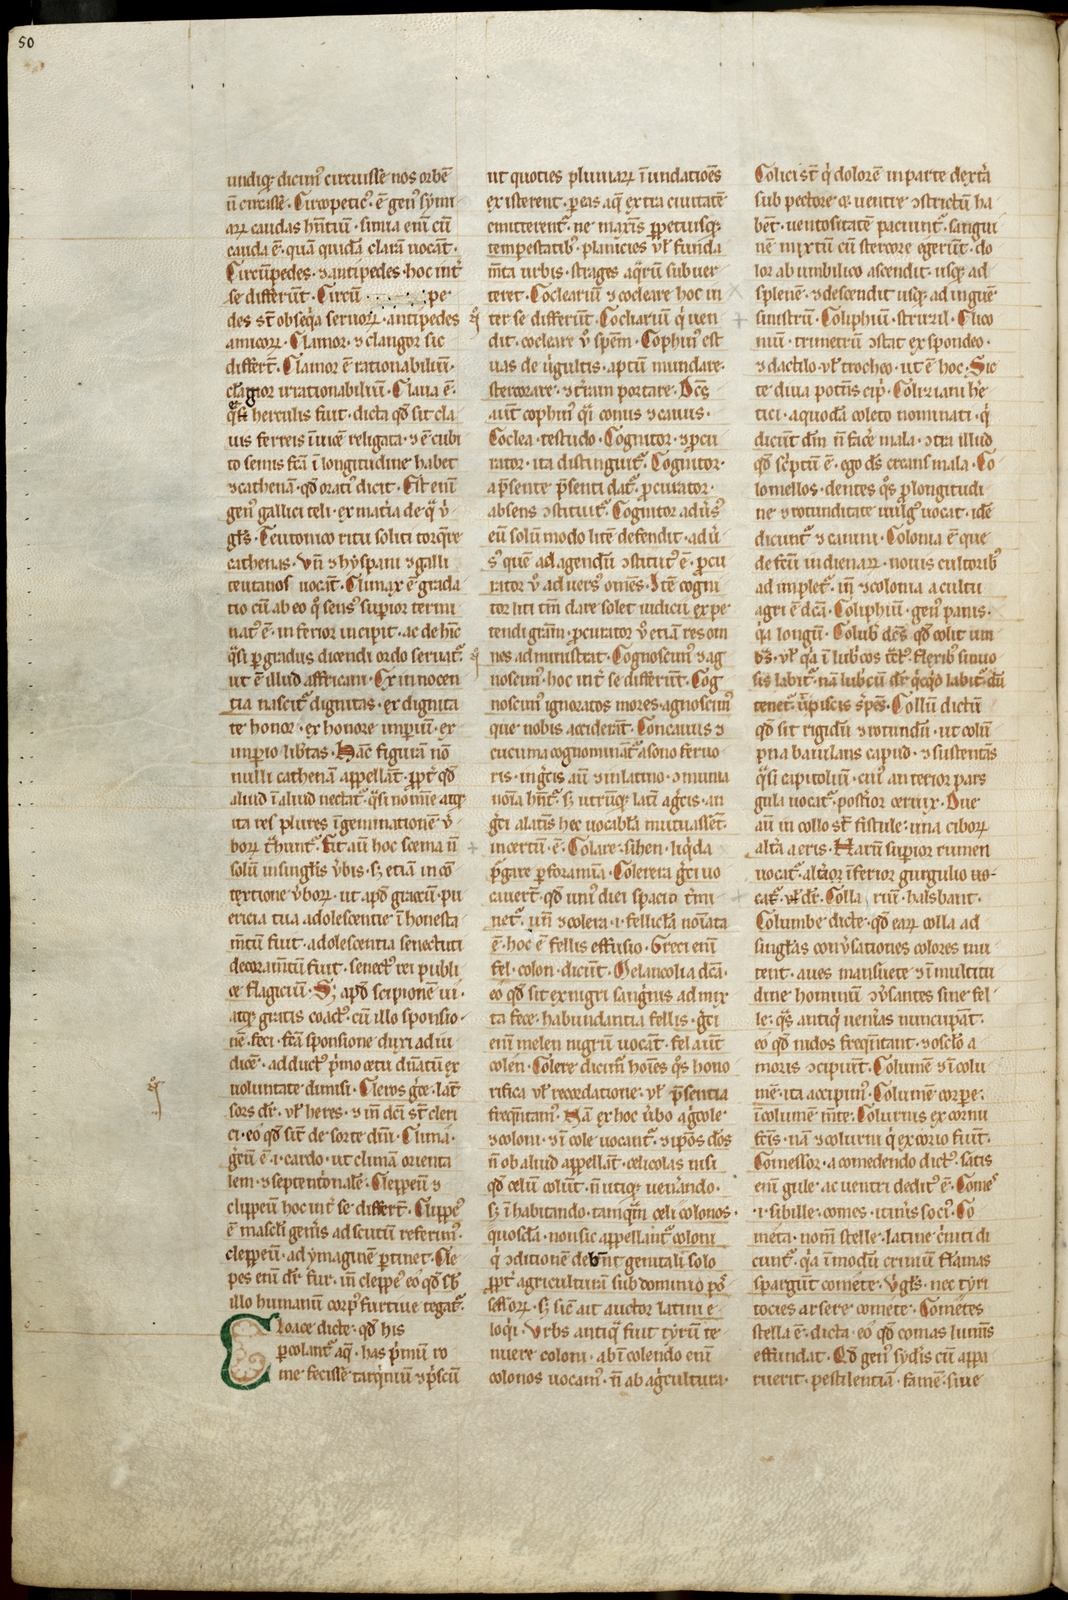 50
undiq; dicim᷒ circuisse nos orbē
ū circāsē. Circopetic᷒ ē gen᷒ symi
arꝝ caudas hn̄tiū. simia eni᷒ cū
cauda ē. quā quidā clarā vocāt.
Circūpedes. ⁊ antipedes. hoc int̄
se differūt. Circū pe
des st̄ obseq̄a servorꝝ. antipedes
amicorꝝ. Clamor. ⁊ clangor sic
differt̄. Clamor ē rationabiliū.
clangor irrationabiliū. Clava ē.
herculis fuit. dicta qd̄ sit cla
vis ferreis īvicē religata. ⁊ ē cubi
to semis fc̄a ī longitudine habet
⁊ cathenā. qd̄ orati᷒ dicit. Est enī
gen᷒ gallici teli. ex mat̄ia de q̄ v̄
gł̄s. Teutonico ritu soliti torq̄re
cathenas. Vn̄ ⁊ hyspani ⁊ galli
teutanos vocāt. Climax ē grada
tio cū ab eo q̊ sens᷒ supīor termi
nat᷒ ē. inferior incipit. ac de hīc
q̄si p gradus dicendi ordo servat᷒.
ut ē illud affricani. Ex innocen
tia nascit᷒ dignitas. ex dignita
te honor. ex honore imꝑiū. ex
imꝑio lib̄tas. Hāc figurā nō
nulli cathenā appellāt. ꝓpt̄ qd̄
aliud ī aliud nectat᷒. q̄si noīe atq;
ita res plures īgeminationē v̄
borꝝ t̄hunt᷒. Fit aū hoc scema n̄
solū in singlīs v̄bis. s; etiā in cō
textione v̄borꝝ. ut apd̄ graccū. pu
ericia tua adolescentie īhonesta
m̄tū fuit. adolescentia senectuti
decoram̄tū fuit. senect᷒ rei publi
ce flagiciū. S; apd̄ scipionē vi.
atq; gratis coact᷒. cū illo sponsio.
nē. feci. fc̄a sponsione duxi ad iu
dicē. adduct᷒ p̄mo cetu dānatū ex
voluntate dimisi. Cleros grece. lat̄
sors dr̄. vł heres. ⁊ in̄ dc̄i st̄ cleri
ci. eo qd̄ sīt de sorte dn̄i. Clima.
grecū ē. i. cardo. ut climā orienta
lem. ⁊ septentonalē. Cleppeū ⁊
clippeū hoc int̄ se differt̄. Clippe᷒
ē mascli gen̄is ad scutū referim᷒.
clepeū. ad ymaginē ꝑtinet. Cle
pes enī dr̄ fur. in̄ cleppe᷒ eo qd̄ sb̄
illo humanū corp᷒ furtive tegat᷒.
Cloace dicte. qd̄ his
ꝑcolant᷒ aq̄. has p̄mū ro
me fecisse tarq̄niū ⁊ p̄scū
ut quoties pluviarꝝ īundationēs
existerent. ꝑ eas aq̄ extra civitatē
emitterent᷒. ne maxīs ꝑpetuisq;
tempestatib᷒. planicies vł funda
m̄ta urbis. strages aq̄rū subver
teret. Cocleariū ⁊ cocleare hoc in
ter se differūt. Cocliariū q̄ ven
dit. cocleare v̄ spēm. Cophin᷒ est
vas de v̄gultis. aptū mundare.
stercorare. ⁊ t̄ram portare. Doc̄s
aūt cophin᷒ q̄i conus ⁊ cavus.
Coclea. testudo. Cognitor. ⁊ ꝓcu
rator. ita distinguit᷒. Cognitor.
ap̄sente p̄senti dat᷒. ꝓcurator.
absens ɔstituit᷒. Cognitor adv̄s᷒
eū solū modo litē defendit. adv̄
s᷒ quē ad agendū ɔstitut᷒ ē. ꝓcu
rator v̄ advers᷒ om̄es. Itē cogni
tor liti tm̄ dare solet iudiciū expe
tendi grām. ꝓcurator v̄ etiā res om
nes administrat. Cognoscim᷒ ⁊ ag
noscim᷒. hoc int̄ se differūt. Cog
noscim᷒ ignoratos mores. agnoscim᷒
que nobis acciderāt. Concavus ⁊
cucuma cognominant᷒ a sono fervo
ris. in gr̄cis aū ⁊ in latino. ɔmunia
noīa hn̄t᷒. s; utrūq; latī agr̄cis. an
gr̄ci a latīs hec vocabl̄a mutuassēt.
incertū. ē. Colare. sihen. liq̄da
p̄gare ꝑ foramina. Colerera gr̄ci vo
caverūt. qd̄ uni᷒ diei spacio t̄mi
net᷒. un̄ ⁊ colera. i. fellicl̄a noīata
ē. hoc ē fellis effusio. Greci enī
fel. colon. dicūt. Melancolia dc̄a.
eo qd̄ sit ex nigri sangīnis admix
ta fece. habundantia fellis. gr̄ci
enī melen nigrū vocāt. fel aūt
colen. Colere dicim᷒ hoīes q̊s hono
rifica vł recordatione. vł p̄sentia
freq̄ntam᷒. Nā ex hoc v̄bo agcole
⁊ coloni. ⁊ īcole vocant᷒. ⁊ ip̄os dōs
n̄ ob aliud appellāt. celicolas nisi
qd̄ celū colūt. n̄ utiq; ven̄ando.
s; īhabitando. tamq̄m celi colonos.
quosdā. non sic appellant᷒ coloni
q̄ ɔditionē debn̄t genitali solo
ꝓpt̄ agriculturā sub dominio pos
sessorꝝ. s; sic ait auctor latini e
loq̄i. Vrbs antiq̄ fuit tyrii te
nuere coloni. ab īcolendo enī
colonos vocam᷒. n̄ ab agcultura.
Colici st̄ q̄ dolorē in parte dextra
sub pectore q̄; ventre ɔstrictū ha
bēt. ventositatē paciunt᷒. sangui
nē mixtū cū stercore egerūt. do
lor ab umbilico ascendit. usq; ad
splenē. ⁊ descendit usq; ad inguē
sinistrū. Coliphiū. struzil. Clico
niū. trimetrū ɔstat ex spondeo.
⁊ dactilo vł trocheo. ut ē hoc. Sic
te diva potēs cip̄. Coliziani he
tici. a quodā coleto nominati. q̄
dicūt dm̄ n̄ facē mala. ɔtra illud
qd̄ sc̄ptū ē. ego ds̄ creans mala. Co
lomellos. dentes q̊s ꝓ longitudi
ne ⁊ rotunditate vulg᷒ vocat. idē
dicunt᷒ ⁊ canini. Colonia ē que
defc̄u indienarꝝ. novis cultorib᷒
ad implet᷒. in̄ ⁊ colonia a cultu
agri ē dc̄a. Coliphiū. gen᷒ panis.
q̄a longū. Colub᷒ dc̄s qd̄ colit um
b̄s. vł q̄a ī lub̄cos tc̄t᷒ flexib᷒ sinuo
sis labit᷒. nā lubcū dr̄ q̄cq̄d labit᷒ dū
tenet᷒. ut piscis s̄pēs. Collū dictū
qd̄ sit rigidū ⁊ rotundū. ut colū
pna baiulans capud. ⁊ sustentās
q̄si capitoliū. cui᷒ anterior pars
gula vocat᷒. post̄ior cervix. Due
aū in collo st̄ fistule. una ciborꝝ
altā aeris. Harū supior rumen
vocat᷒. altāor īferior gurgulio vo-
cat᷒. vł dr̄. Colla riū. halsbant.
Columbe dicte. qd̄ earꝝ colla ad
singl̄as conv̄sationes colores mu
tent. aves mansuete ⁊ ī multitu
dine hominū ɔv̄santes sine fel
le. q̄s antiq̄ ven̄ias nuncupāt.
eo qd̄ nidos freq̄ntant. ⁊ osclo a
moris ɔcipiūt. Columē ⁊ īcolu
mē. ita accipim᷒. Columē corpe.
īcolumē m̄te. Colurnus ex cornu
fc̄is. nā ⁊ colurni q̄ ex corio fiūt.
Comessor. a comedendo dict᷒. satis
enī gule ac ventri dedit᷒ ē. Comes
. i. sibille. comes. itin̄is soci᷒. Co
meta. nom̄ stelle. latine c̄niti di
cunt᷒. q̄a ī modū criniū flamas
spargūt comete. Vgł̄s. nec tyri
tocies arsere comete. Cometes
stella ē. dicta. eo qd̄ comas lumīs
effundat. Qd̄ gen᷒ syd̄is cū appa
ruerit. pestilentiā. famē. sive